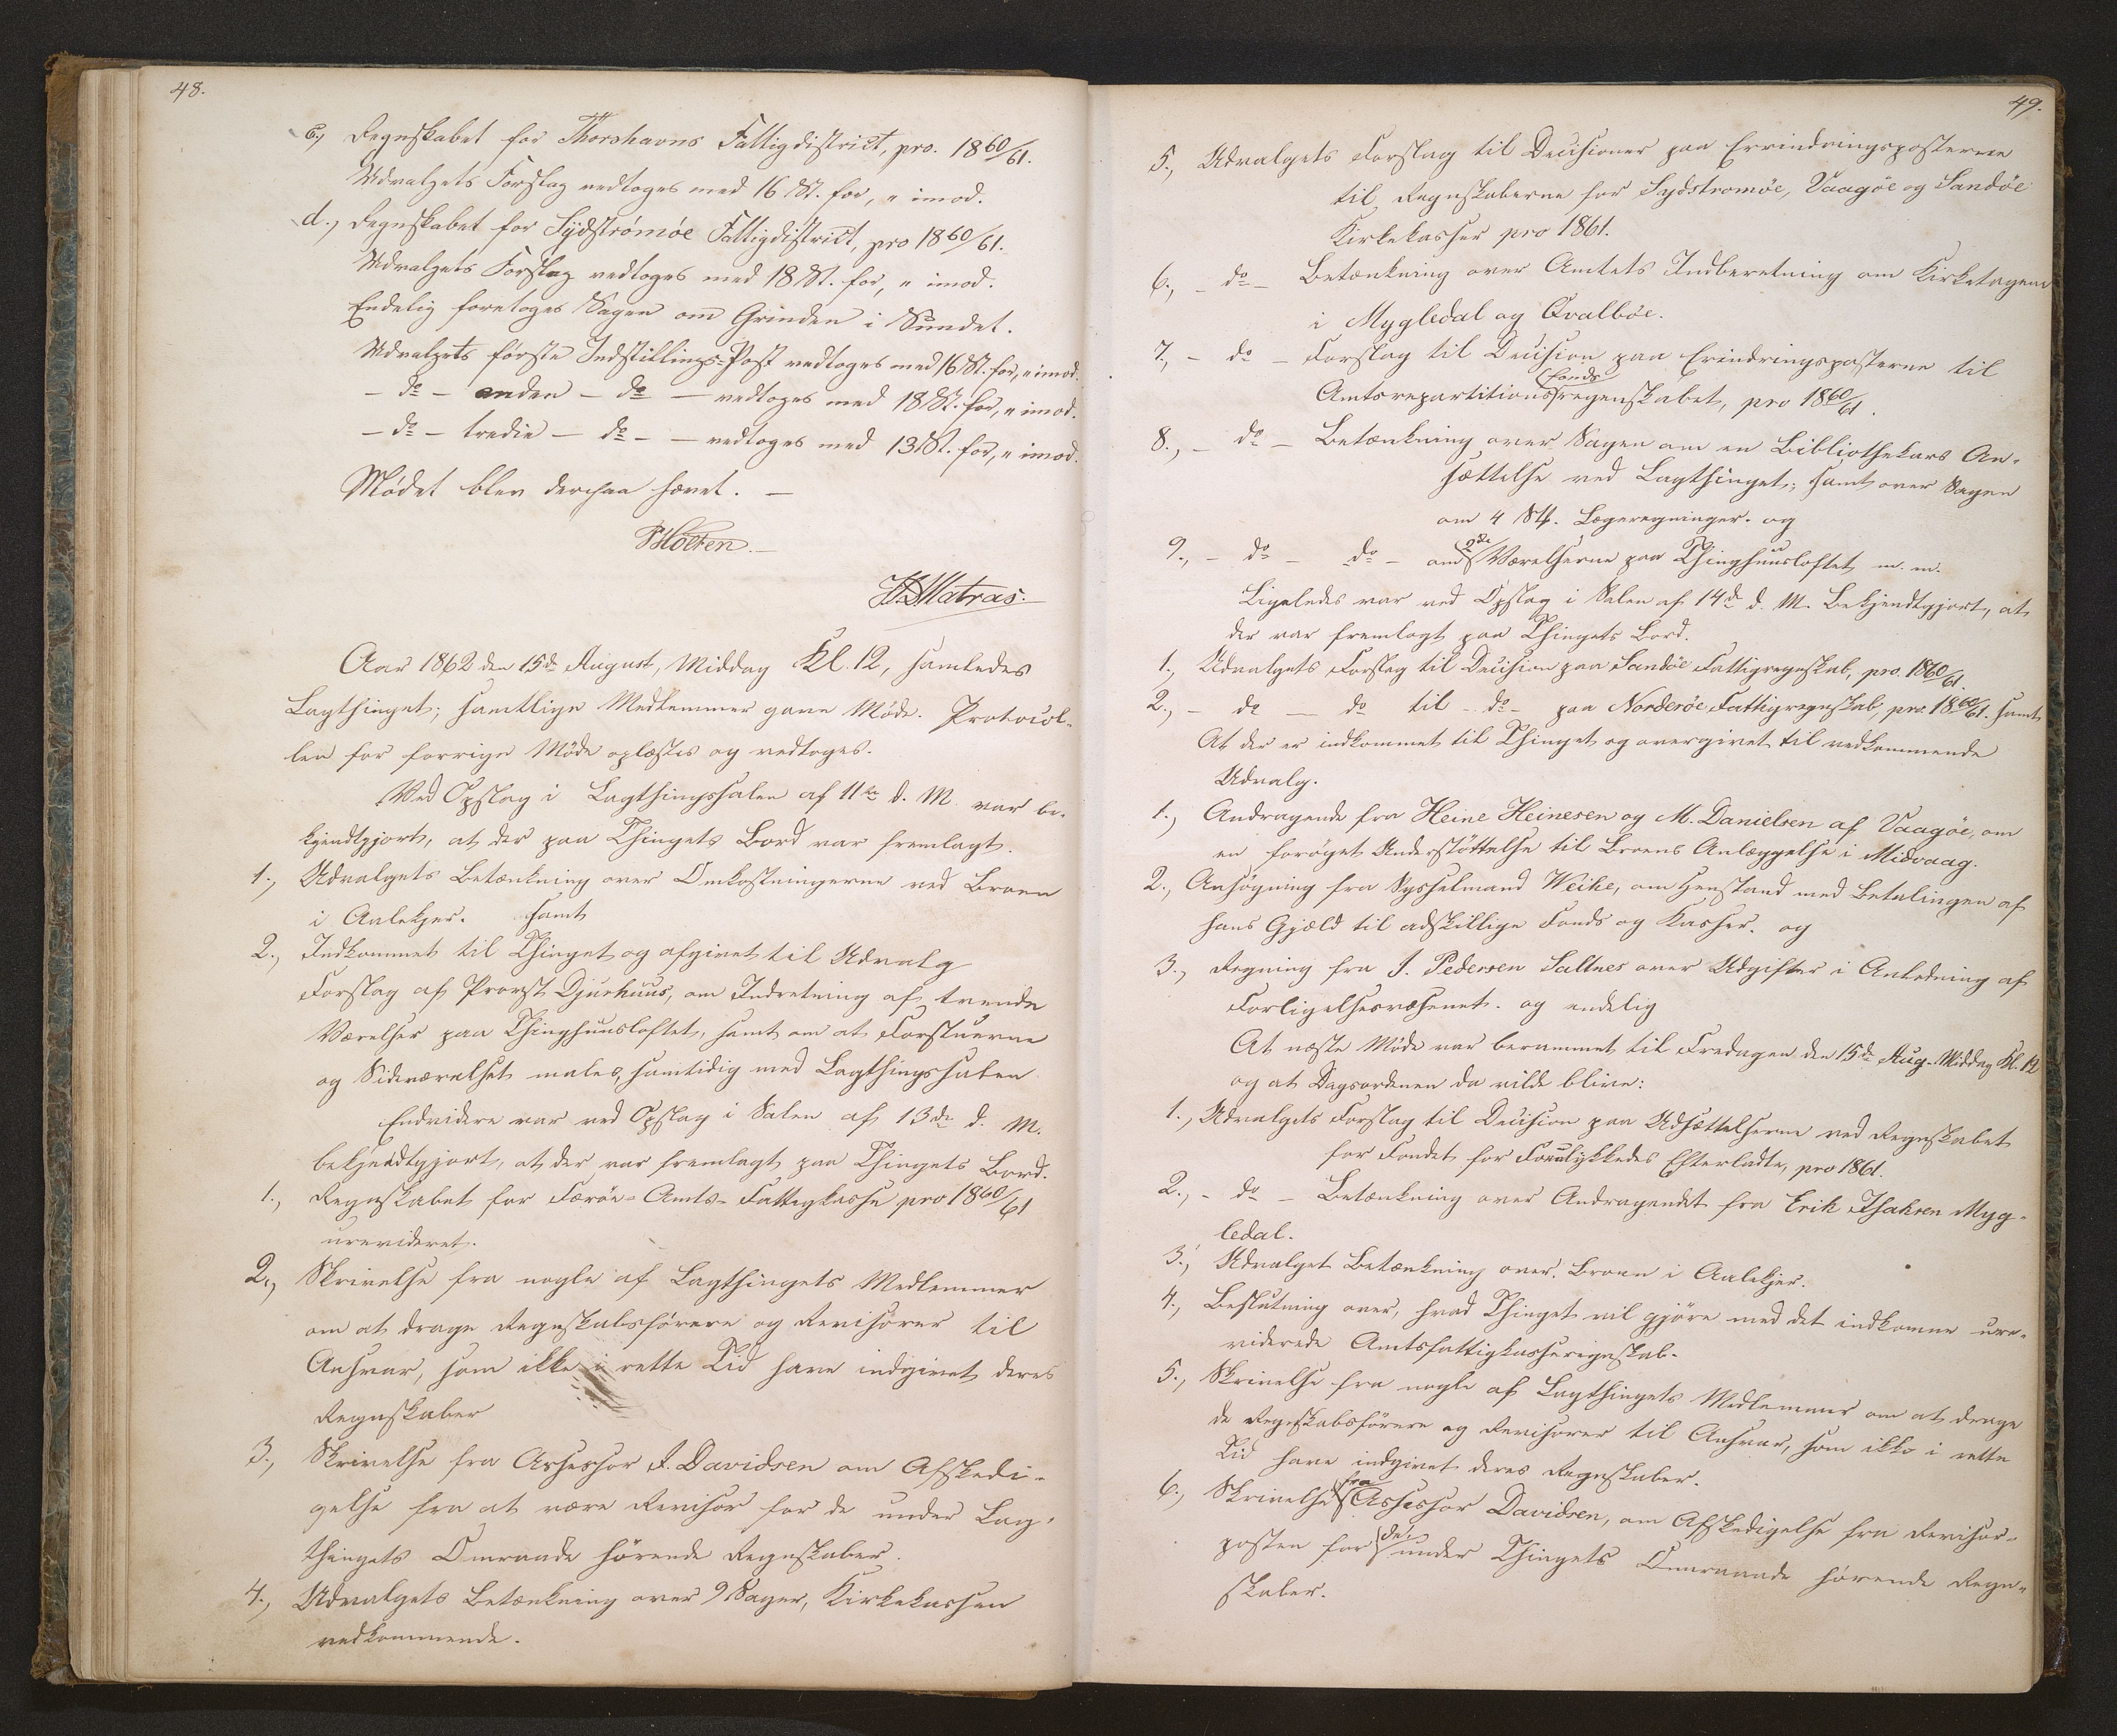 48.
c., Regnskabet for Thorshavns Fattigdistrict, pro. 1860/61.
Udvalgets Forslag vedtoges med 16 St. for, „ imod.
d., Regnskabet for Sydströmöe Fattigdistrict, pro 1860/61.
Udvalgets Forslag vedtoges med 18 St. for, „ imod.
Endelig foretoges Sagen om Grinden i Sundet.
Udvalgets første Indstillings-Post vedtoges med 16 St. for, „ imod.
- do - anden - do - vedtoges med 18 St. for, „ imod.
- do - tredie - do - - vedtoges med 13 St. for, „ imod.
Mødet blev derpaa hævet. -
PHolten.
Matras.
Aar 1862 den 15de August, Middag Kl. 12, samledes
Lagthinget; samtlige Medlemmer gave Møde. Protocol-
len for forrige Møde oplæstes og vedtoges.
Ved Opslag i Lagthingssalen af 11te d. M. var be-
kjendtgjort, at der paa Thingets Bord var fremlagt.
1., Udvalgets Betænkning over Omkostningerne ved Broen
i Aalekjer. samt
2., Indkommet til Thinget og afgivet til Udvalg
Forslag af Provst Djurhuus, om Indretning af trende
Værelser paa Thinghuusloftet, samt om at Forstuerne
og Sideværelset males, samtidig med Lagthingssalen
Endvidere var ved Opslag i Salen af 13de d. M.
bekjendtgjort, at der var fremlagt paa Thingets Bord.
1., Regnskabet for Færöe-Amts-Fattigkasse pro 1860/61
urevideret.
2., Skrivelse fra nogle af Lagthingets Medlemmer
om at drage Regnskabsførere og Revisorer til
Ansvar, som ikke i rette Tid have indgivet deres
Regnskaber
3., Skrivelse fra Assessor J. Davidsen om Afskedi-
gelse fra at være Revisor for de under Lag-
thingets Omraade hørende Regnskaber.
4., Udvalgets Betænkning over 9 Sager, Kirkekassen
vedkommende.
49.
5., Udvalgets Forslag til Decisioner paa Errindringsposterne
til Regnskaberne for Sydstromöe, Vaagöe og Sandöe
Kirkekasser pro 1861.
6., - do - Betænkning over Amtets Indberetning om Kirketagene
i Mygledal og Qvalböe.
7., - do - Forslag til Decision paa Erindringsposterne til
fonds
Amtsrepartitionsregnskabet, pro 1860/61.
8., - do - Betænkning over Sagen om en Bibliothekars An-
sættelse ved Lagthinget; samt over Sagen
om 4 Stk. Lægeregninger. og
9., - do - do - om Værelserne paa Thinghuusloftet m. m.
Ligeledes var ved Opslag i Salen af 14de d. M. bekjendtgjort, at
der var fremlagt paa Thingets Bord.
1., Udvalgets Forslag til Decision paa Sandöe Fattigregnskab, pro. 1860/61.
2., - do - do til - do - paa Norderöe Fattigregnskab, pro. 1860/61. samt
At der er indkommet til Thinget og overgivet til vedkommende
Udvalg.
1., Andragende fra Heine Heinesen og M. Danielsen af Vaagöe, om
en forøget Understøttelse til Broens Anlæggelse i Midvaag.
2., Ansøgning fra Sysselmand Weihe, om Henstand med Betalingen af
hans Gjæld til adskillige Fonds og Kasser. og
3., Regning fra J. Pedersen Saltnes over Udgifter i Anledning af
Forligelsesvæsenet. og endelig
At næste Møde var berammet til Fredagen den 15de Aug. Middag Kl. 12
og at Dagsordenen da vilde blive:
1., Udvalgets Forslag til Decision paa Udsættelserne ved Regnskabet
for Fondet for Forulykkedes Efterladte, pro 1861.
2., - do - Betænkning over Andragendet fra Erik Isaksen Myg-
ledal.
3., Udvalget Betænkning over. Broen i Aalekjer.
4., Beslutning over, hvad Thinget vil gjøre med det indkomne ure-
viderede Amtsfattigkasseregnskab.
5., Skrivelse fra nogle af Lagthingets Medlemmer om at drage
de Regnskabsførere og Revisorer til Ansvar, som ikke i rette
Tid have indgivet deres Regnskaber.
fra
6., Skrivelse Assessor Davidsen, om Afskedigelse fra Revisor-
de
posten for under Thingets Omraade hørende Regn-
skaber.